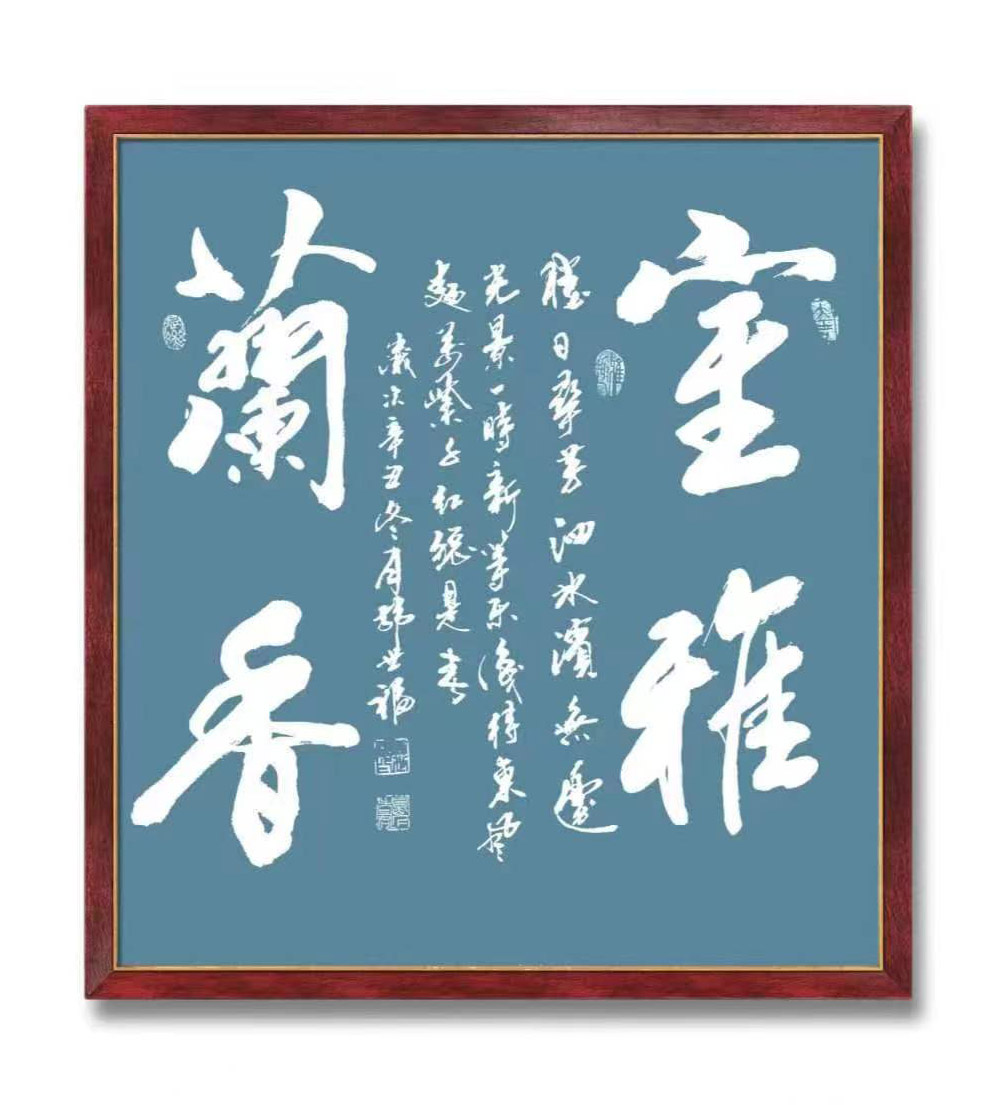 室雅
勝日尋芳泗水濱無邊
光景一時新等閑識得東風
面萬紫千紅總是春
歲次辛丑冬月韓世福
蘭香